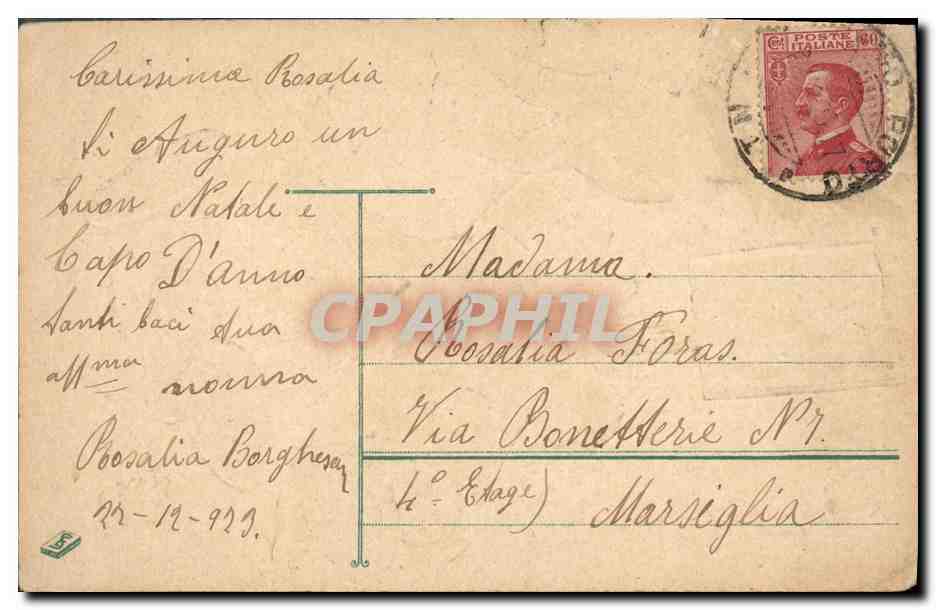 Carissima Rosalia
Ti Auguro un
buon Natale e
Capo D'anno
tanti baci tua
aff.ma nonna
Rosalia Borghesan
22-12-929.
POSTE
ITALIANE
60
Madama.
Rosalia Foras.
Via Bonetterie N 7.
4° Etage)
Marsiglia
CPAPHIL